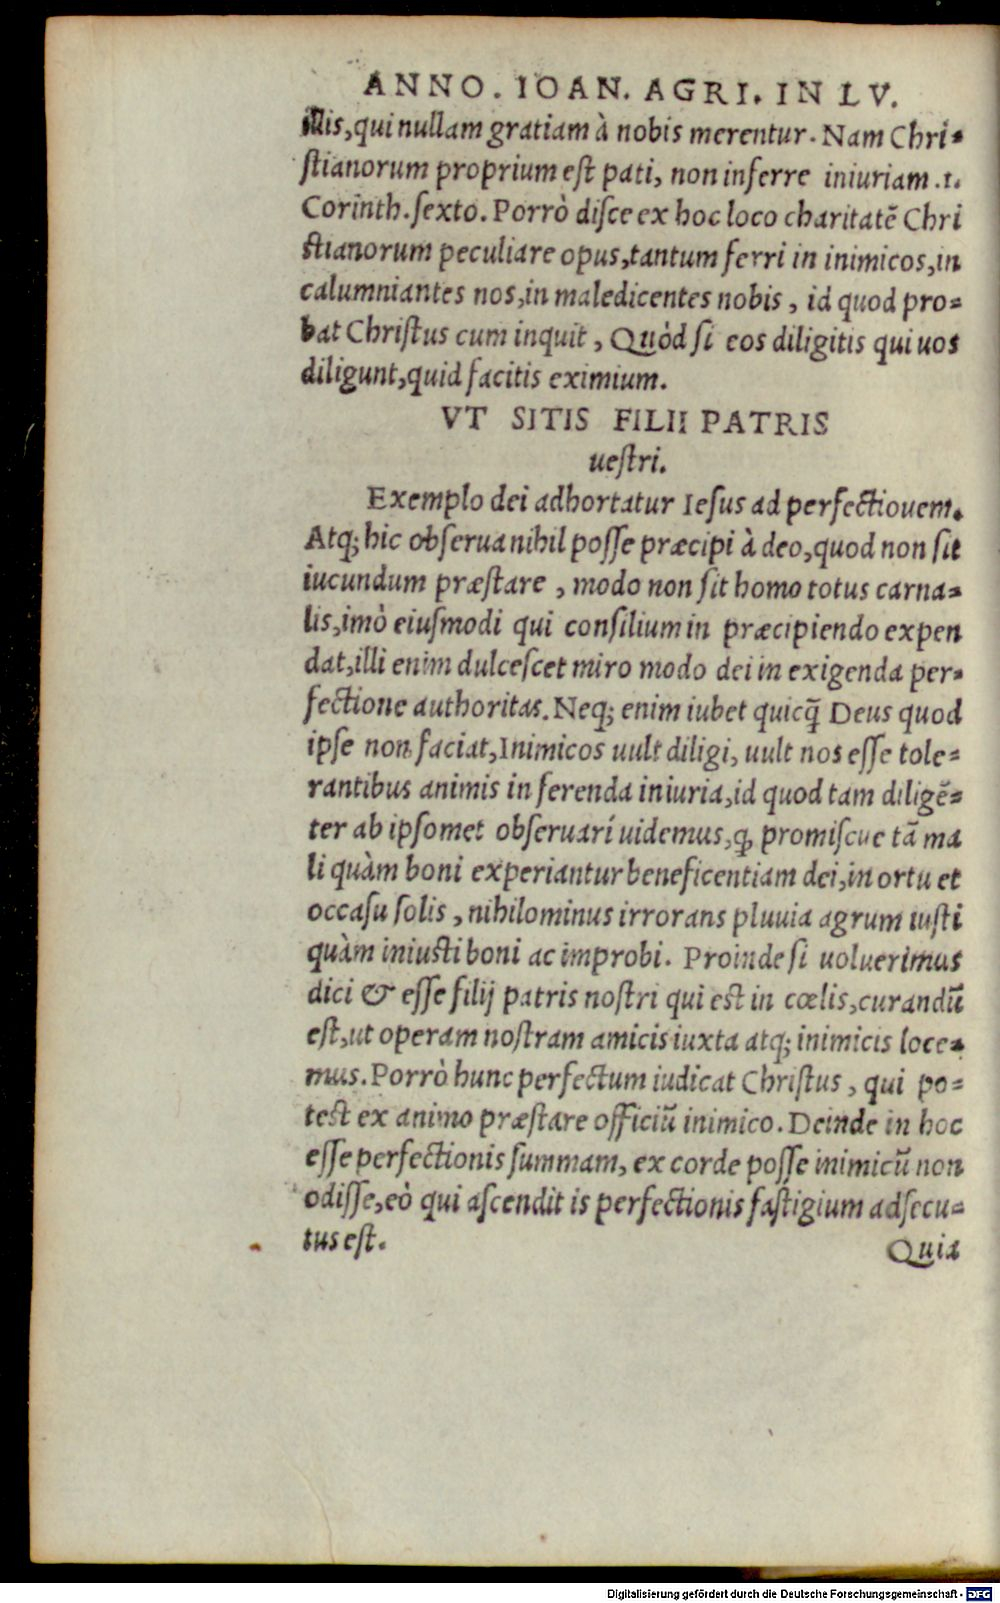 ANNO. IOAN. AGRI. IN LV.
illis, qui nullam gratiam à nobis merentur. Nam Chri=
stianorum proprium est pati, non inferre iniuriam .1.
Corinth. sexto. Porrò disce ex hoc loco charitatē Chri
stianorum peculiare opus, tantum ferri in inimicos, in
calumniantes nos, in maledicentes nobis, id quod pro=
bat Christus cum inquit, Quòd si eos diligitis qui uos
diligunt, quid facitis eximium.
VT SITIS FILII PATRIS
uestri.
Exemplo dei adhortatur Iesus ad perfectiouem.
Atq; hic obserua nihil posse præcipi à deo, quod non sit
iucundum præstare, modo non sit homo totus carna=
lis, imò eiusmodi qui consilium in præcipiendo expen
dat, illi enim dulcescet miro modo dei in exigenda per=
fectione authoritas. Neq; enim iubet quicq̄ Deus quod
ipse non faciat, Inimicos uult diligi, uult nos esse tole=
rantibus animis in ferenda iniuria, id quod tam diligē=
ter ab ipsomet obseruari uidemus, ꝙ promiscue tā ma
li quàm boni experiantur beneficentiam dei, in ortu et
occasu solis, nihilominus irrorans pluuia agrum iusti
quàm iniusti boni ac improbi. Proinde si uoluerimus
dici & esse filij patris nostri qui est in cœlis, curandū
est, ut operam nostram amicis iuxta atq; inimicis loce=
mus. Porrò hunc perfectum iudicat Christus, qui po=
test ex animo præstare officiū inimico. Deinde in hoc
esse perfectionis summam, ex corde posse inimicū non
odisse, eò qui ascendit is perfectionis fastigium adsecu=
tus est.
Quia
Digitalisierung gefördert durch die Deutsche Forschungsgemeinschaft - DFG